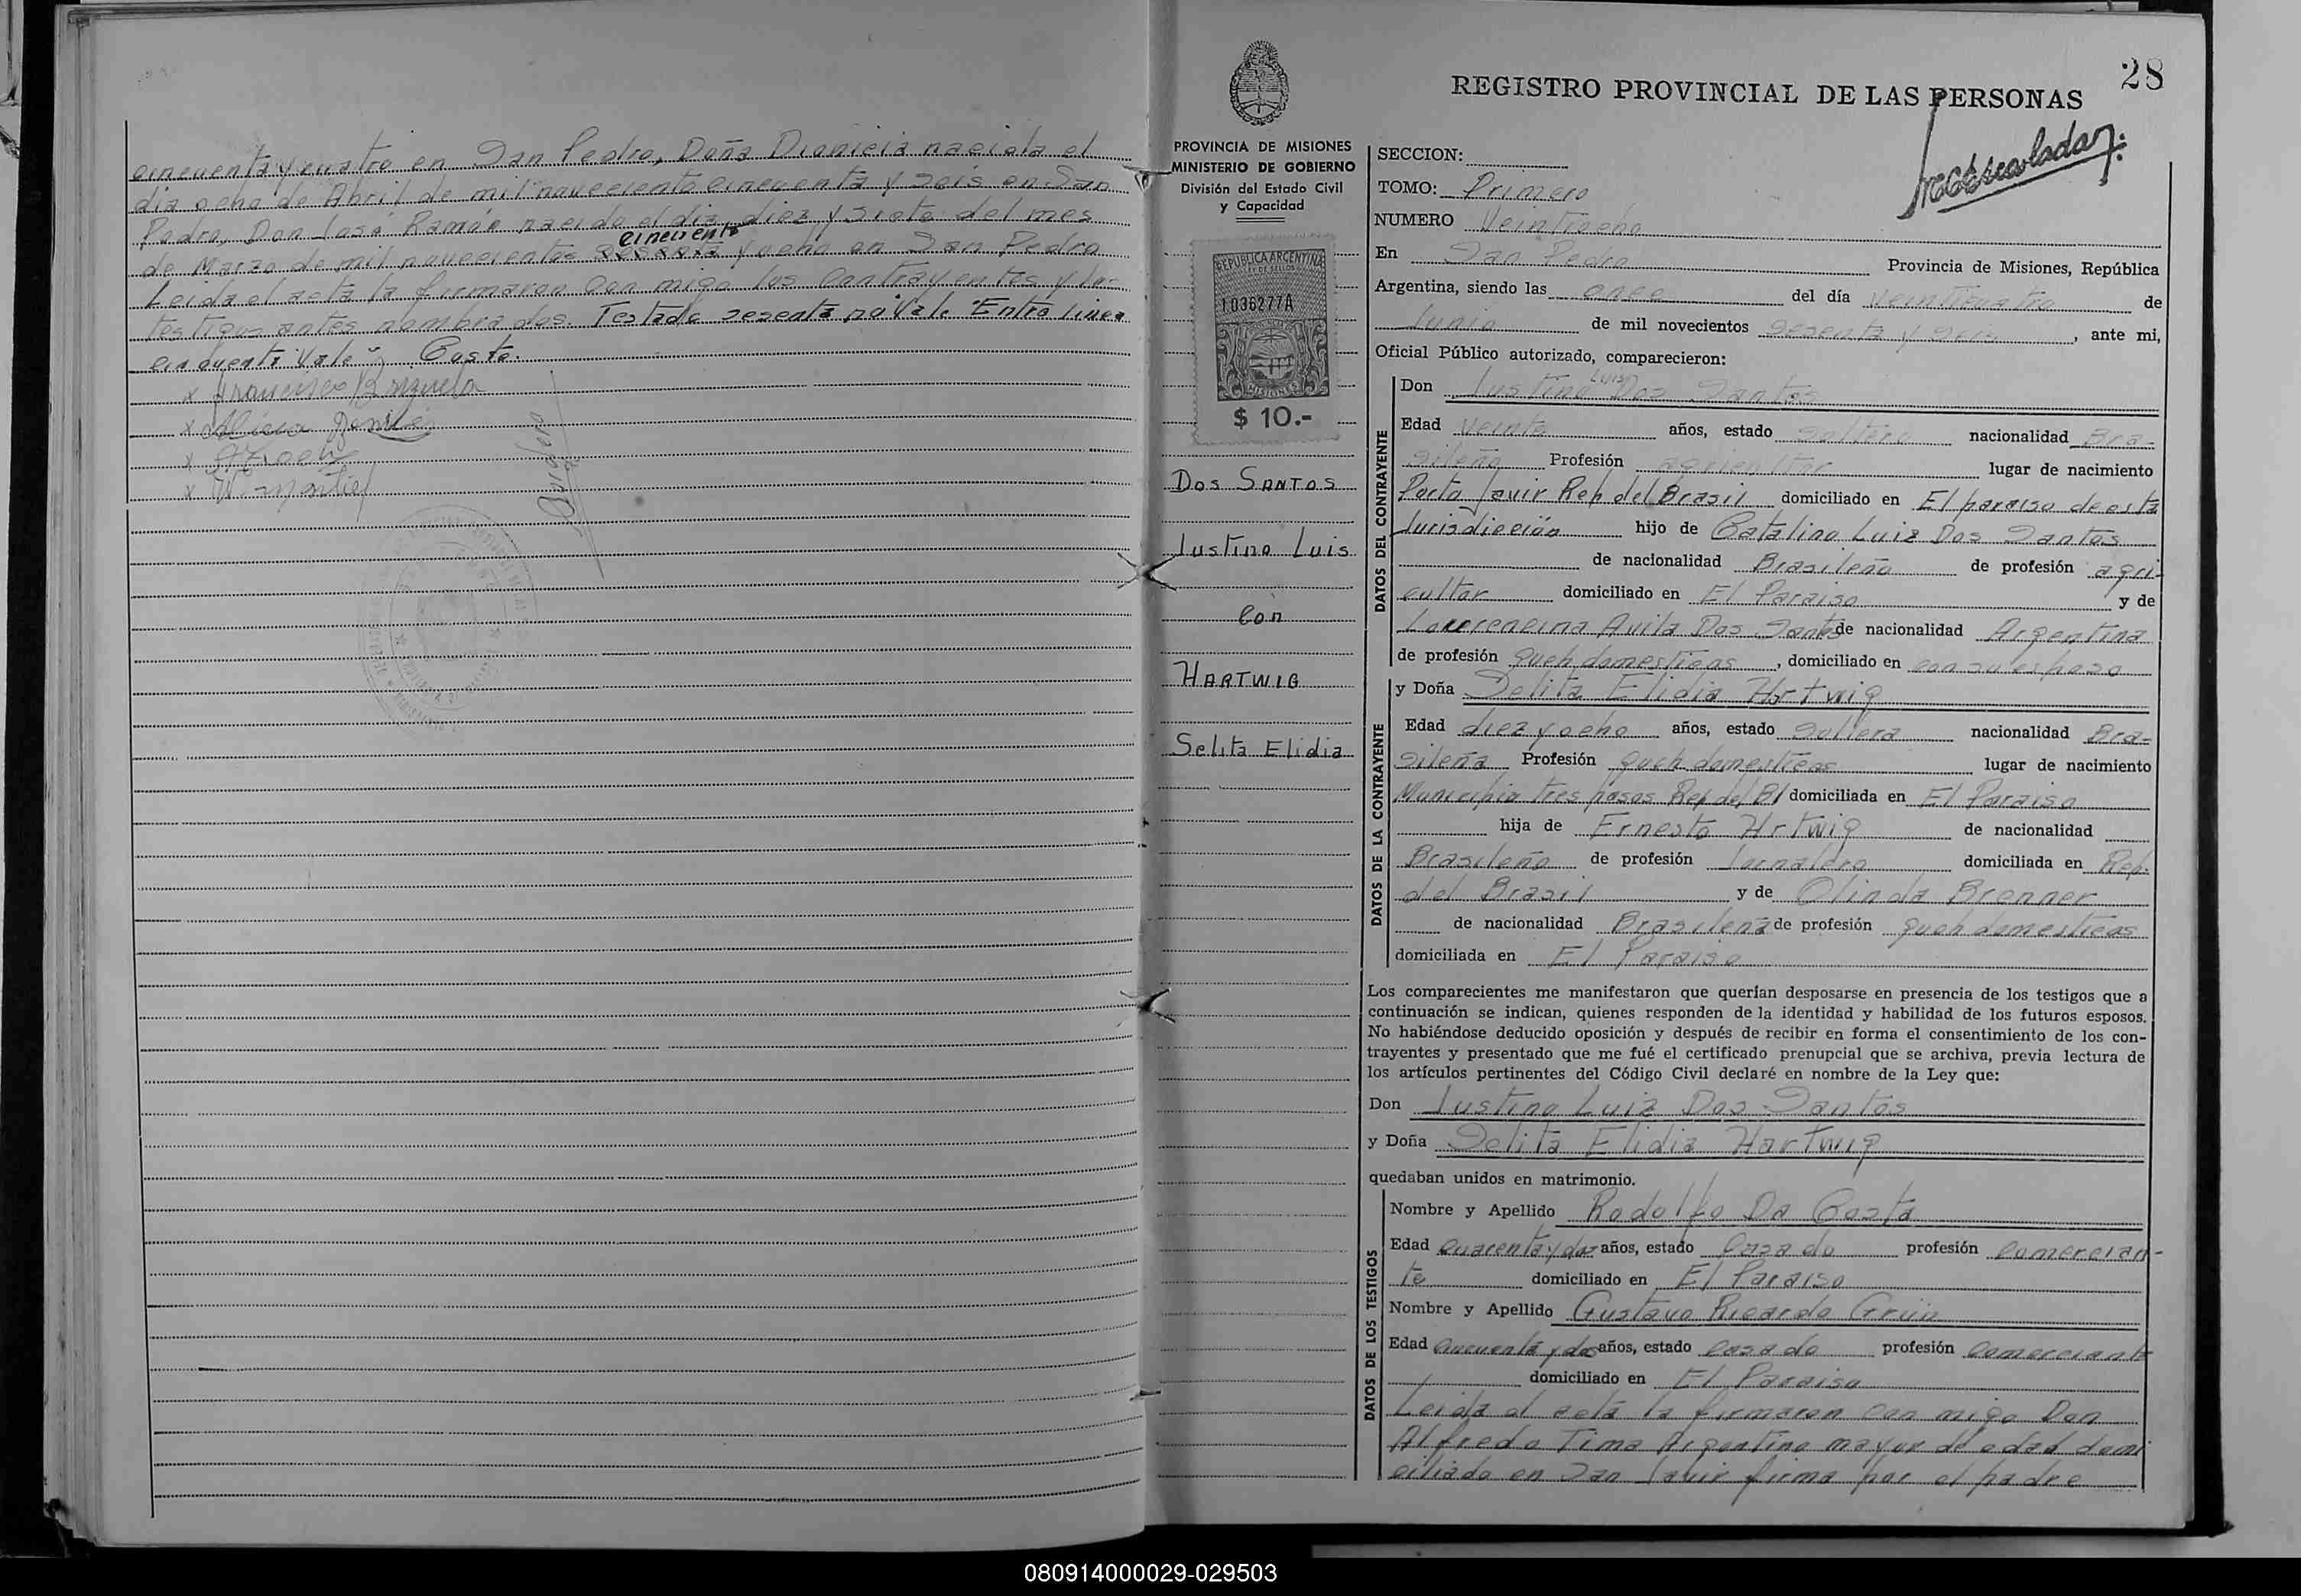 cincuenta y cuatro en San Pedro, Doña Dionicia nacida el
dia ocho de Abril de mil novecientos cincuenta y seis en San
Pedro, Don José Ramón nacido el dia diez y siete del mes
cincuenta
de Marzo de mil novecientos sesenta y ocho en San Pedro
Leida el acta la firmaron con migo los contrayentes y los
testigos antes nombrados. Testado sesenta no Vale Entre linea
cincuenta Vale Coste.
x Francisco Brizuela
x
x
x W. Montiel
28
REGISTRO PROVINCIAL DE LAS PERSONAS
PROVINCIA DE MISIONES
MINISTERIO DE GOBIERNO
División del Estado Civil
y Capacidad
REPUBLICA ARGENTINA
LEY DE SELLOS
1036277A
MISIONES
$ 10.-
DOS SANTOS
Justino Luis
Con
HARTWIG
Selita Elidia
SECCION:
TOMO: Primero
NUMERO Veintiocho
En San Pedro Provincia de Misiones, República
Argentina, siendo las once del día veinticuatro de
Junio de mil novecientos sesenta y seis, ante mi,
Oficial Público autorizado, comparecieron:
DATOS DEL CONTRAYENTE
Luis
Don Justino Dos Santos
Edad veinte años, estado soltero nacionalidad Bra-
sileño Profesión agricultor lugar de nacimiento
Porto Javir Rep del Brasil domiciliado en El paraiso de esta
Jurisdicción hijo de Catalino Luiz Dos Santos
de nacionalidad Brasileño de profesión agri-
cultor domiciliado en El Paraiso y de
Avila Dos Santos de nacionalidad Argentina
de profesión queh domesticas, domiciliado en con su esposo
DATOS DE LA CONTRAYENTE
y Doña Selita Elidia Hartwig
Edad diez y ocho años, estado soltera nacionalidad Bra-
sileña Profesión queh domesticas lugar de nacimiento
Municipio tres pasos Rep del Bl domiciliada en El Paraiso
hija de Ernesto Hrtwig de nacionalidad
Brasileño de profesión Jornalero domiciliada en Rep.
del Brasil y de Olinda Brenner
de nacionalidad Brasileña de profesión queh domesticas
domiciliada en El Paraiso
Los comparecientes me manifestaron que querían desposarse en presencia de los testigos que a
continuación se indican, quienes responden de la identidad y habilidad de los futuros esposos.
No habiéndose deducido oposición y después de recibir en forma el consentimiento de los con-
trayentes y presentado que me fué el certificado prenupcial que se archiva, previa lectura de
los artículos pertinentes del Código Civil declaré en nombre de la Ley que:
Don Justino Luiz Dos Santos
y Doña Selita Elidia Hartwig
quedaban unidos en matrimonio.
DATOS DE LOS TESTIGOS
Nombre y Apellido Rodolfo Da Costa
Edad cuarenta y dos años, estado Casado profesión comercian-
te domiciliado en El Paraiso
Nombre y Apellido Gustavo Ricardo Grün
Edad cincuenta y dos años, estado casado profesión comerciante
domiciliado en El Paraiso
Leida el acta la firmaron con migo Don
Alfredo Tima Argentino mayor de edad domi
ciliado en San Javir firma por el padre
080914000029-029503